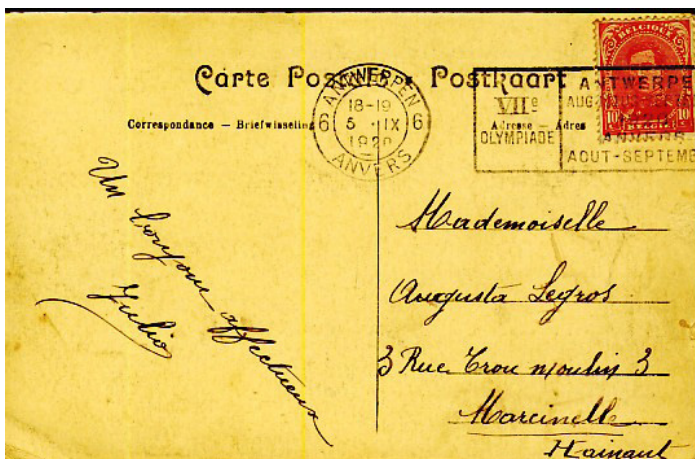 Carte Postale Postkaart
Correspondance — Briefwisseling
Adresse — Adres
BELGIQUE
10 10
ANTWERPEN
18-19
6 5 IX 6
1920
ANVERS
VIIe
OLYMPIADE
ANTWERPEN
1920
ANVERS
AOUT-SEPTEMB
Un bonjour affectueux
Julia
Mademoiselle
Augusta Legros
3 Rue Trou moulin 3
Marcinelle
Hainaut